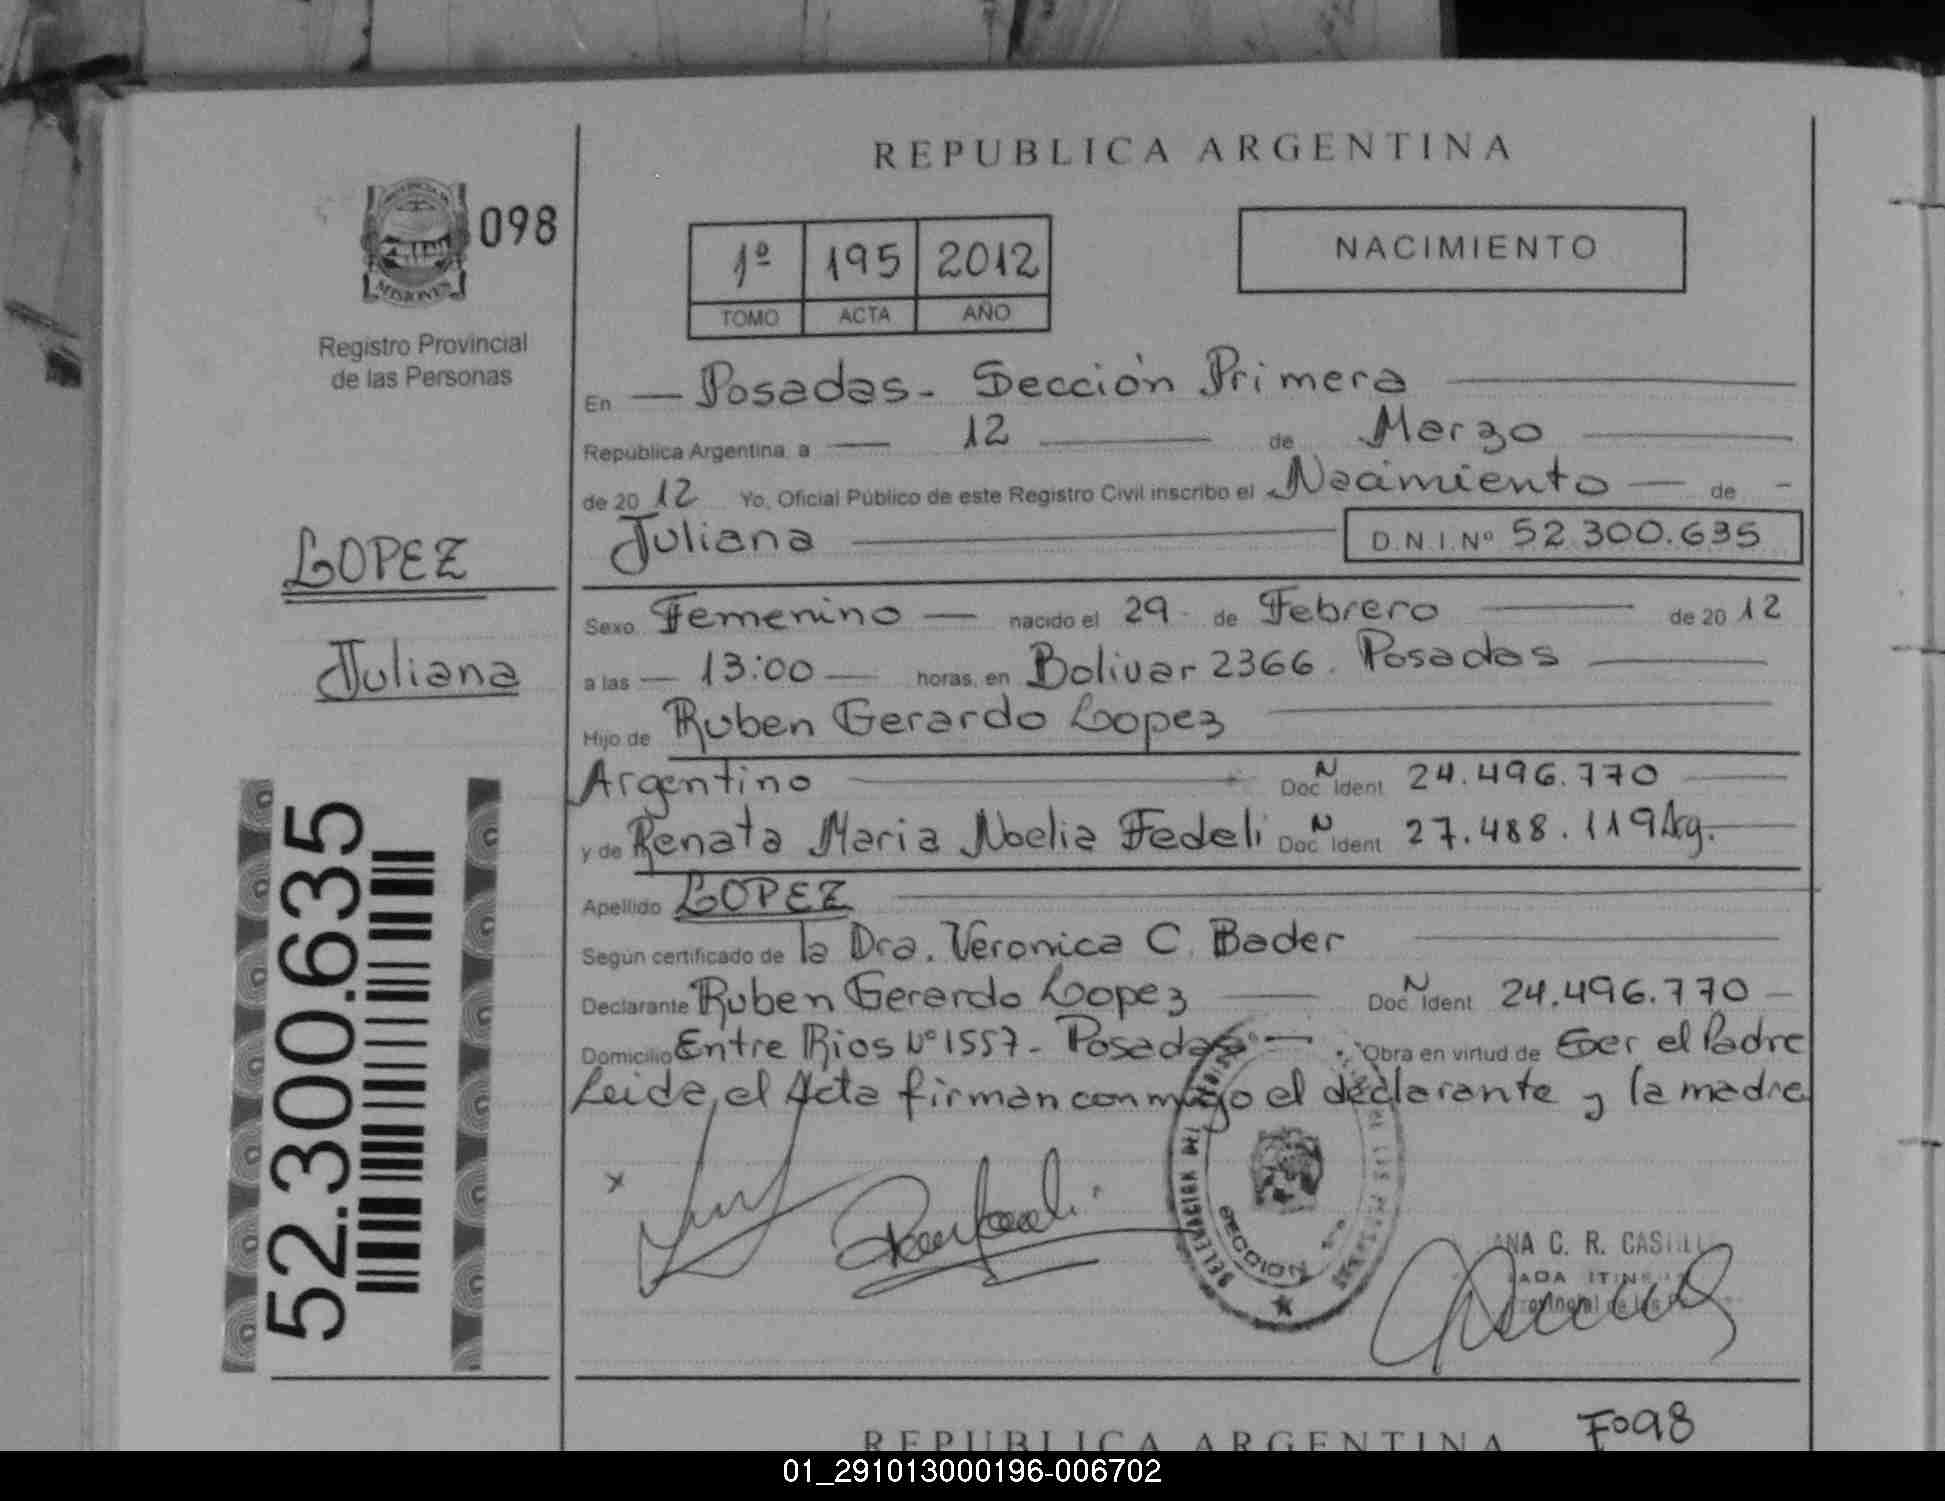 REPUBLICA ARGENTINA
MISIONES
098
Registro Provincial
de las Personas
1º 195 2012
TOMO ACTA AÑO
NACIMIENTO
En — Posadas - Sección Primera
República Argentina, a — 12 — de Marzo
de 20 12 Yo, Oficial Público de este Registro Civil inscribo el Nacimiento — de -
Juliana — D.N.I.Nº 52.300.635
LOPEZ
Juliana
52.300.635
Sexo Femenino — nacido el 29 - de Febrero — de 20 12
a las — 13:00 — horas, en Bolivar 2366. Posadas —
Hijo de Ruben Gerardo Lopez
Argentino — Doc. N Ident 24.496.770 —
y de Renata Maria Noelia Fedeli Doc. N Ident 27.488.119 Arg.
Apellido LOPEZ
Según certificado de la Dra. Veronica C. Bader
Declarante Ruben Gerardo Lopez — Doc. N Ident 24.496.770 —
Domicilio Entre Rios Nº 1557 - Posadas — Obra en virtud de Ser el Padre
Leida, el Acta firman conmigo el declarante y la madre
SECCION
ANA C. R.
Fº 98
REPUBLICA ARGENTINA
01_291013000196-006702